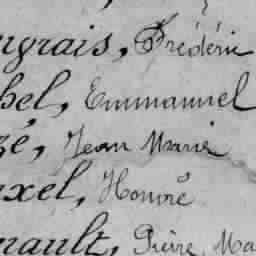 ngrais, Frédéric
hel, Emmanuel
zé, Jean Marie
uxel, Honoré
nault, Pierre, Ma